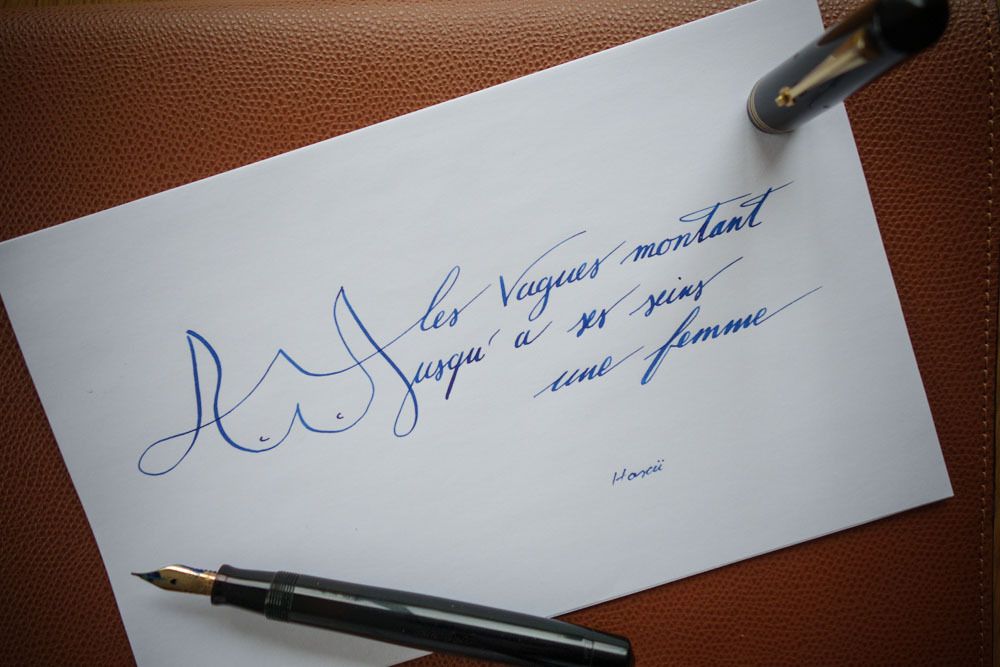 les vagues montant
jusqu'a ses seins
une femme